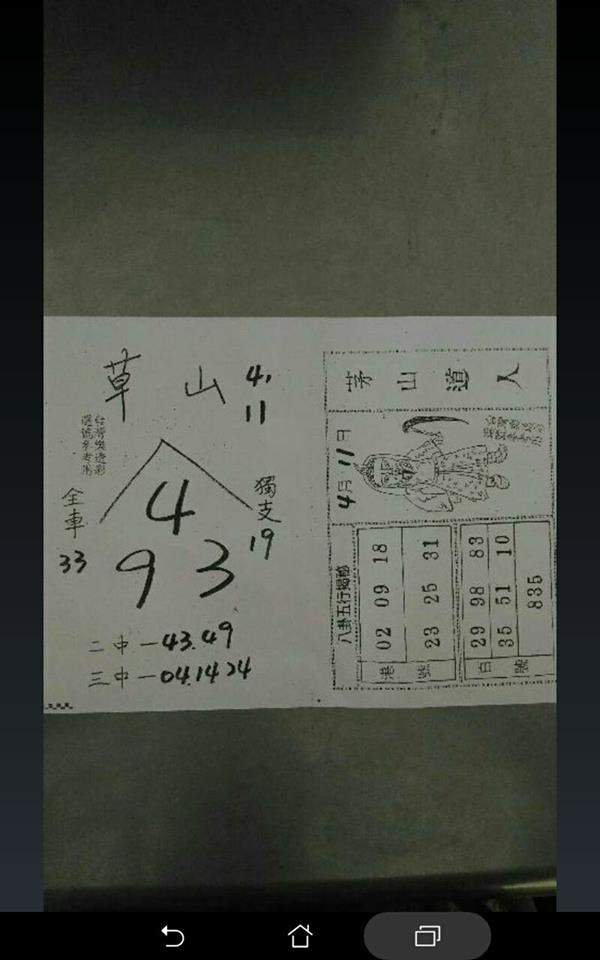 草山
4,
11
台灣樂透彩
選號參考用
全車
33
獨支
19
4
9 3
二中－43.49
三中－04.14 24
茅山道人
4月11日
八卦五行揭秘
港號
02 09 18
23 25 31
百號
29 98 83
35 51 10
835